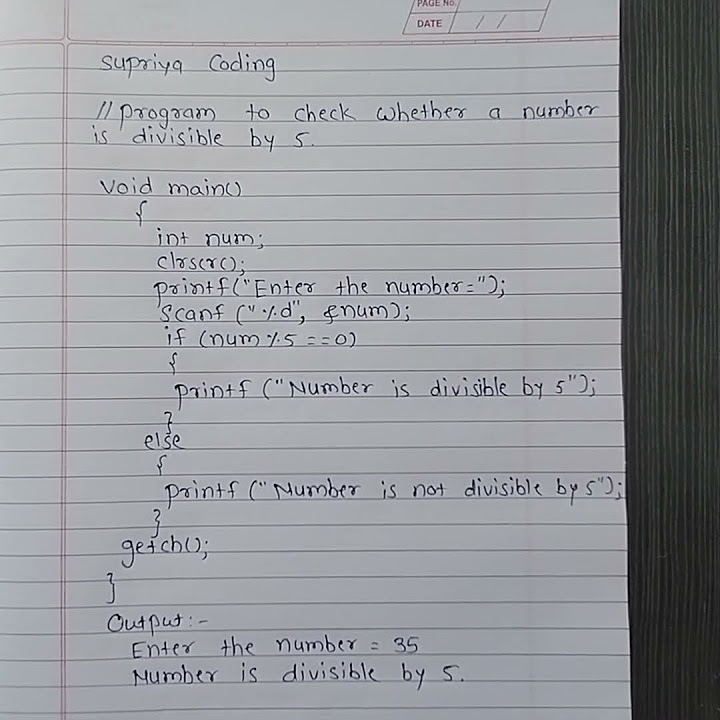 PAGE No.
DATE / /
Supriya Coding
// program to check whether a number
is divisible by 5.
void main()
{
int num;
clrscr();
printf("Enter the number=");
scanf ("%d", &num);
if (num%5 ==0)
{
printf ("Number is divisible by 5");
}
else
{
printf ("Number is not divisible by 5");
}
getch();
}
Output:-
Enter the number = 35
Number is divisible by 5.